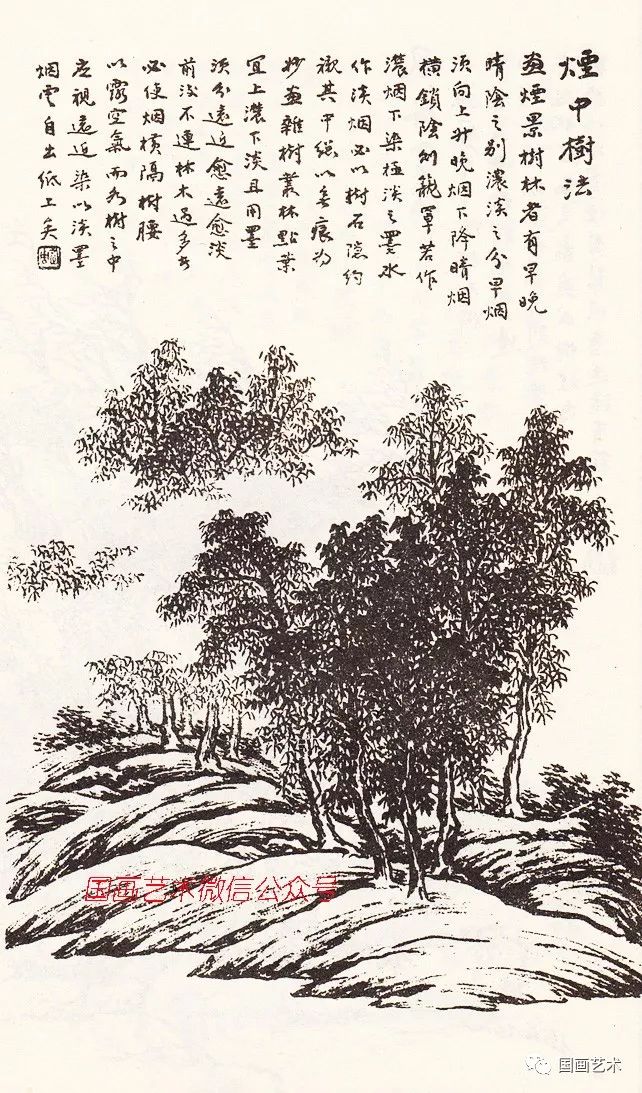 煙中樹法
畫煙景樹林者有早晚
晴陰之別濃淡之分早烟
須向上升晚烟下降晴烟
橫鎖陰則籠罩若作
濃烟下染極淡之墨水
作淡烟必以樹石隱約
襯其中總以無痕為
妙畫雜樹叢林點葉
宜上濃下淡且用墨
須分遠近愈遠愈淡
前後不連林木過多者
必使烟橫隔樹腰
以露空氣而於樹之中
左視遠近染以淡墨
烟雲自出紙上矣
国画艺术微信公众号
国画艺术